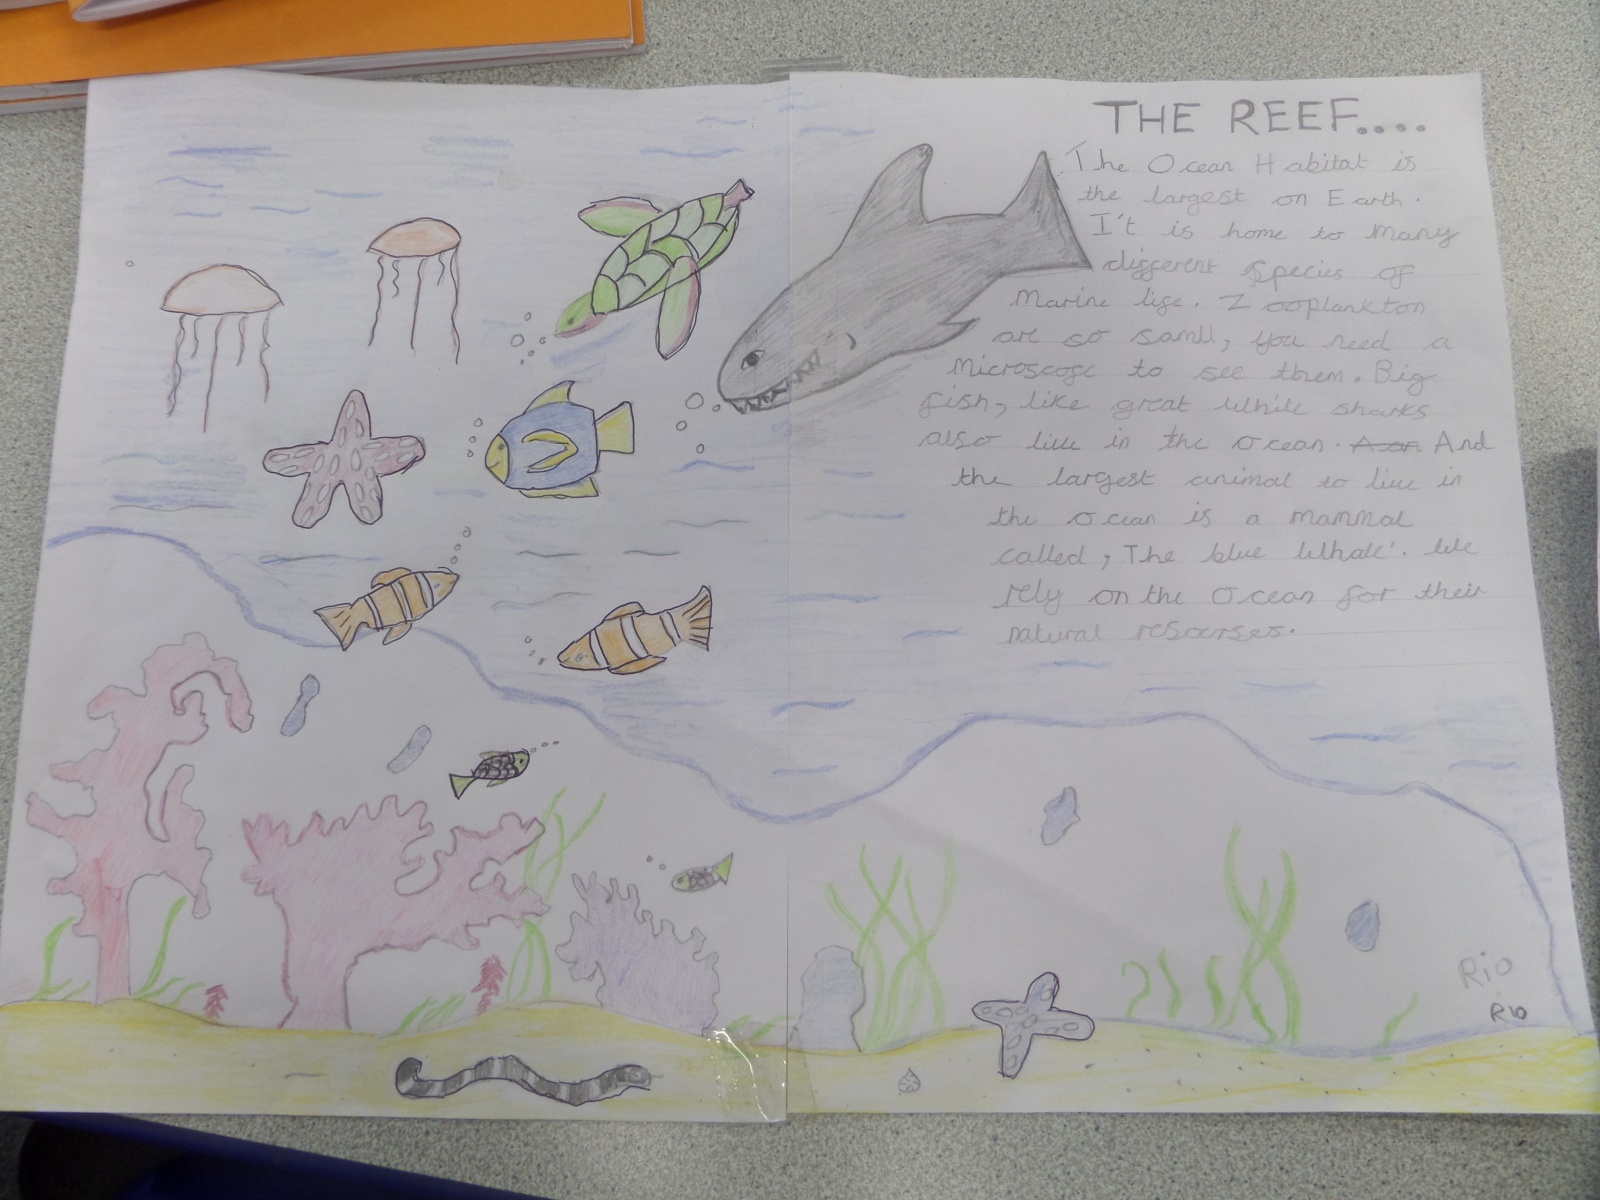 THE REEF....
The Ocean Habitat is
the largest on Earth.
I't is home to many
different Species of
Marine life. Zooplankton
are so samll, you need a
Microscope to see them. Big
fish, like great white sharks
also live in the ocean. And
the largest animal to live in
the ocean is a mammal
called, The blue Whale'. We
rely on the Ocean for their
natural resourses.
Rio
Rio